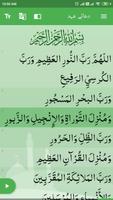 10:00 AM
دعائے عہد
بِسْمِ اللهِ الرَّحْمٰنِ الرَّحِيْمِ
اَللّٰهُمَّ رَبَّ النُّوْرِ الْعَظِيْمِ وَرَبَّ
الْكُرْسِيِّ الرَّفِيْعِ
وَرَبَّ الْبَحْرِ الْمَسْجُوْرِ
وَمُنْزِلَ التَّوْرَاةِ وَالْاِنْجِيْلِ وَالزَّبُوْرِ
وَرَبَّ الظِّلِّ وَالْحَرُوْرِ
وَمُنْزِلَ الْقُرْاٰنِ الْعَظِيْمِ
وَرَبَّ الْمَلَائِكَةِ الْمُقَرَّبِيْنَ